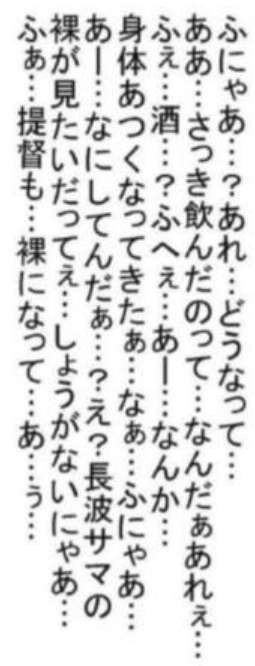 ふにゃあ…？あれ…どうなって…
ああ…さっき飲んだのって…なんだぁあれぇ…
ふぇ…酒…？ふへぇ…あー…なんか…
身体あつくなってきたぁ…なぁ…ふにゃあ…
あー…なにしてんだぁ…？え？長波サマの
裸が見たいだってぇ…しょうがないにゃあ…
ふぁ…提督も…裸になって…あ…ぅ…